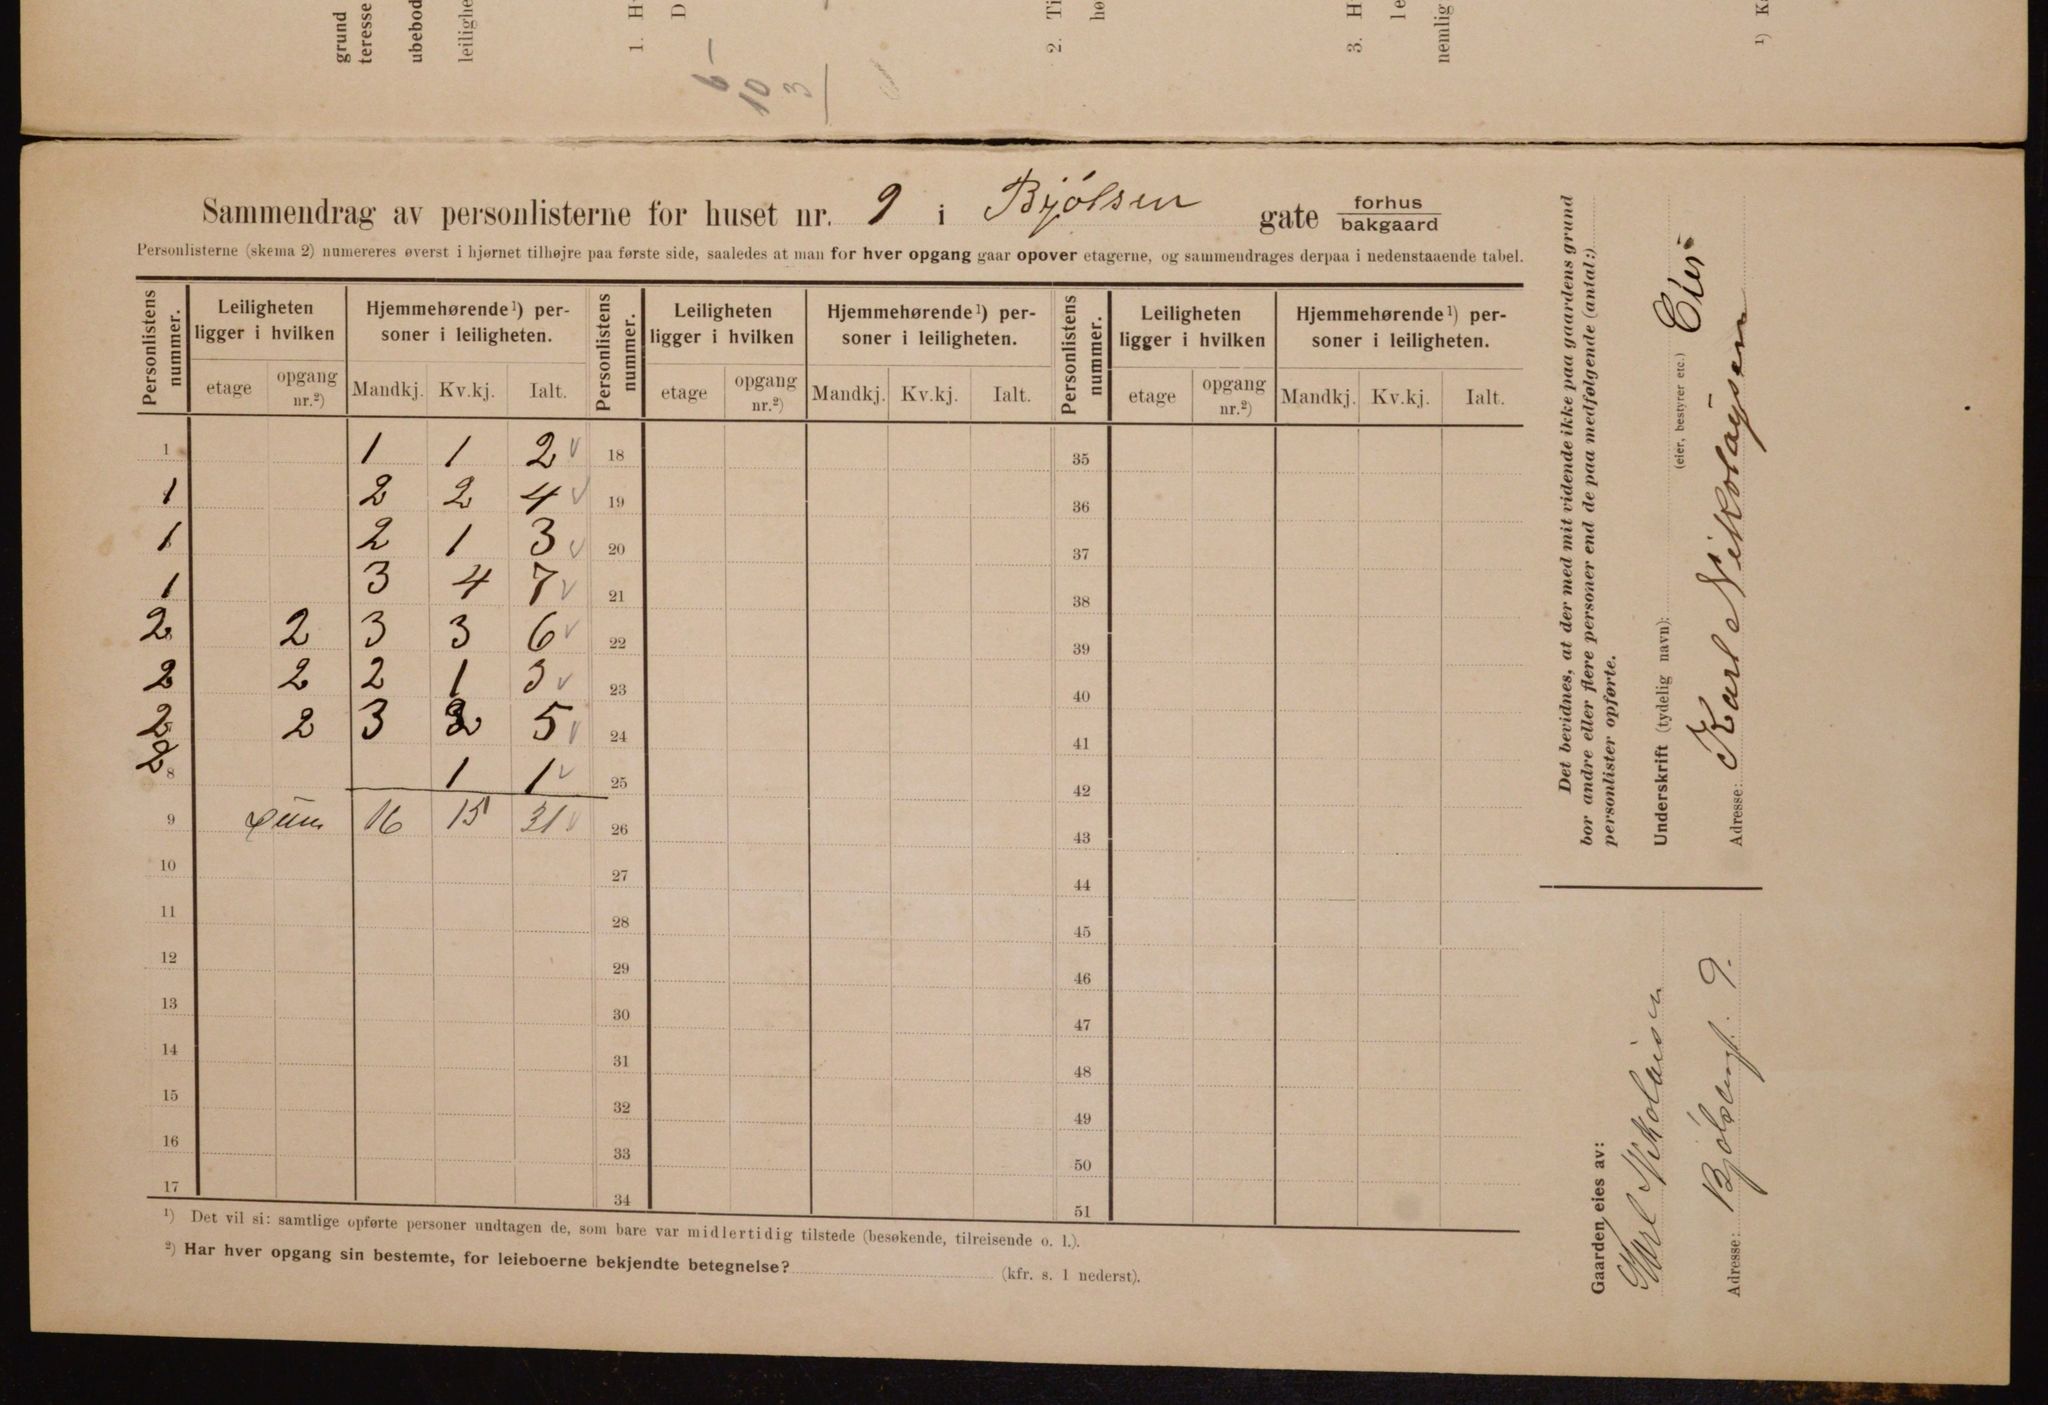 grund
teresse
ubebod
leilighe
1. H
D
2. Ti
hø
3. H
le
nemlig
¹) K
6
10
3
Sammendrag av personlisterne for huset nr. 9 i Bjölsen gate forhus bakgaard
Personlisterne (skema 2) numereres øverst i hjørnet tilhøjre paa første side, saaledes at man for hver opgang gaar opover etagerne, og sammendrages derpaa i nedenstaaende tabel.
Personlistens nummer. Leiligheten ligger i hvilken Hjemmehørende¹) personer i leiligheten. Personlistens nummer. Leiligheten ligger i hvilken Hjemmehørende¹) personer i leiligheten. Personlistens nummer. Leiligheten ligger i hvilken Hjemmehørende¹) personer i leiligheten.
etage opgang nr.²) Mandkj. Kv.kj. Ialt. etage opgang nr.²) Mandkj. Kv.kj. Ialt. etage opgang nr.²) Mandkj. Kv.kj. Ialt.
1 1 1 2 18 35
1 2 2 4 19 36
1 2 1 3 20 37
1 3 4 7 21 38
2 2 3 3 6 22 39
2 2 2 1 3 23 40
2 2 3 2 5 24 41
2 8 1 1 25 42
9 Sum 16 15 31 26 43
10 27 44
11 28 45
12 29 46
13 30 47
14 31 48
15 32 49
16 33 50
17 34 51
¹) Det vil si: samtlige opførte personer undtagen de, som bare var midlertidig tilstede (besøkende, tilreisende o. l.).
²) Har hver opgang sin bestemte, for leieboerne bekjendte betegnelse? (kfr. s. 1 nederst).
Det bevidnes, at der med mit vidende ikke paa gaardens grund
bor andre eller flere personer end de paa medfølgende (antal:)
personlister opførte.
Underskrift (tydelig navn): (eier, bestyrer etc.) Eier
Karl Nikolaysen
Adresse:
Gaarden eies av:
Karl Nikolaisen
Adresse: Bjölsengt. 9.